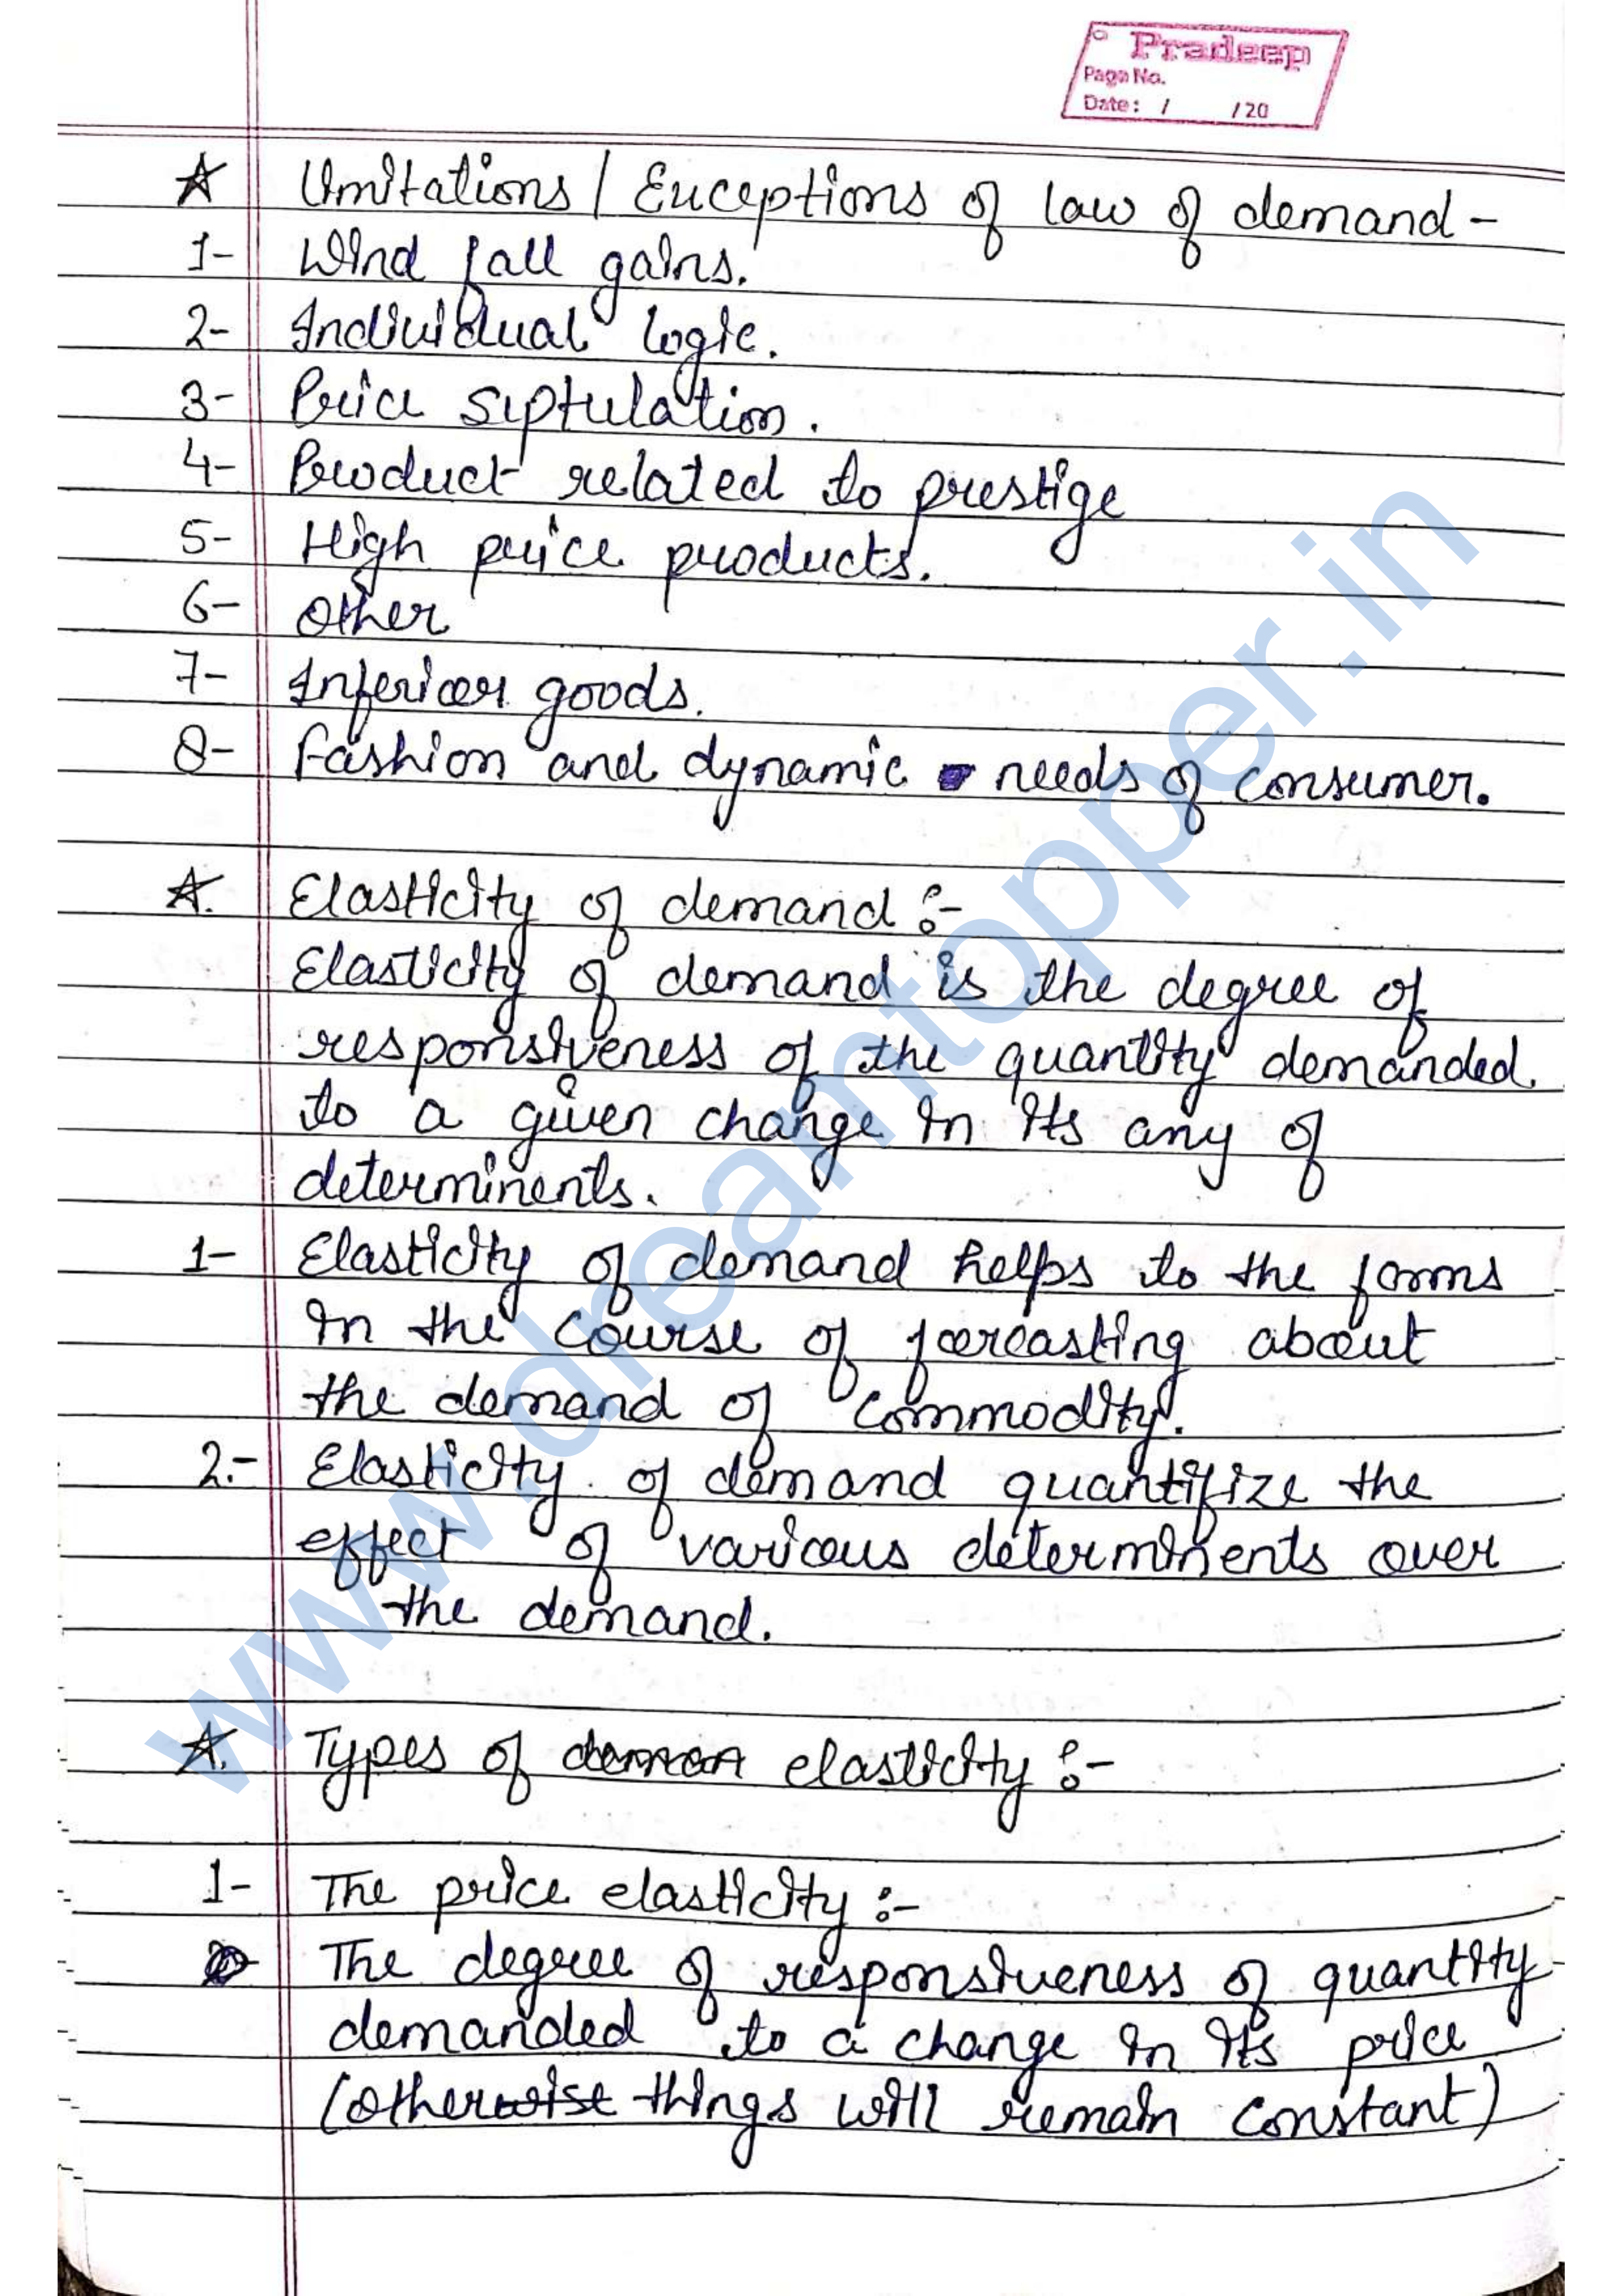 Pradeep
Page No.
Date: / /20
☆ Limitations / Exceptions of law of demand -
1- Wind fall gains.
2- Individual logic.
3- Price siptulation.
4- Product related to prestige
5- High price products.
6- Other
7- Inferior goods.
8- Fashion and dynamic needs of consumer.
☆. Elasticity of demand :-
Elasticity of demand is the degree of
responsiveness of the quantity demanded
to a given change in its any of
determinents.
1- Elasticity of demand helps to the forms
in the course of forcasting about
the demand of commodity.
2.- Elasticity of demand quantifize the
effect of various determinents over
the demand.
☆. Types of deman elasticity :-
1- The price elasticity :-
The degree of responsiveness of quantity
demanded to a change in its price
(otherwise things will remain constant)
www.dreamtopper.in